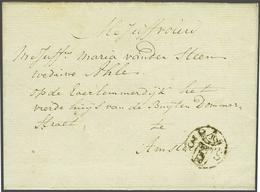 Mejuffrouw
Mejuffr. Maria vander Steen
weduwe Ahle
op de Haerlemmerdijk het
vierde huys van de Buyten Dommer
Straet
te
Amst